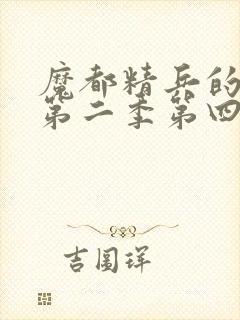 魔都精兵的
第二季第四
吉圖珜